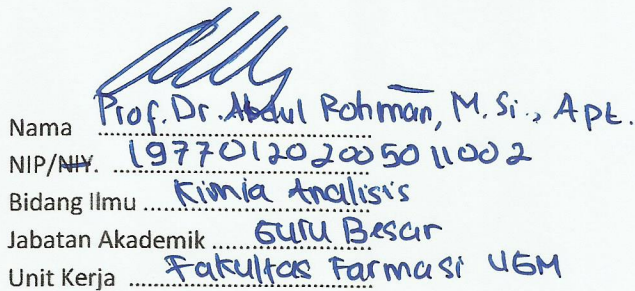 Nama Prof. Dr. Abdul Rohman, M. Si., Apt.
NIP/NIY. 197701202005011002
Bidang Ilmu Kimia Analisis
Jabatan Akademik Guru Besar
Unit Kerja Fakultas Farmasi UGM